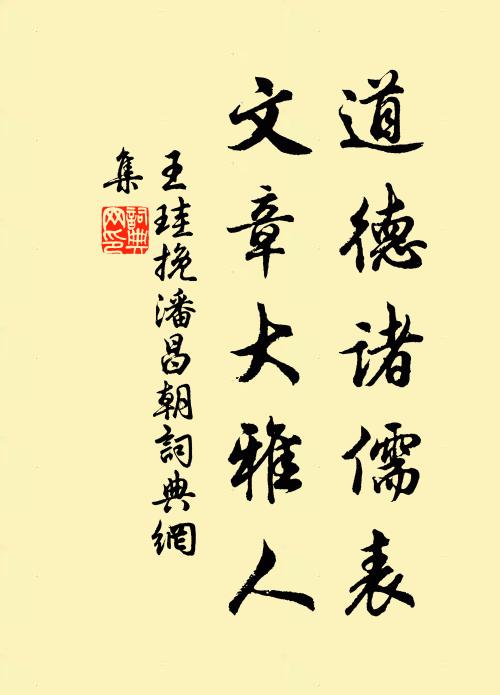 道德诸儒表
文章大雅人
王珪挽潘昌朝詞典網
集
詞典網印